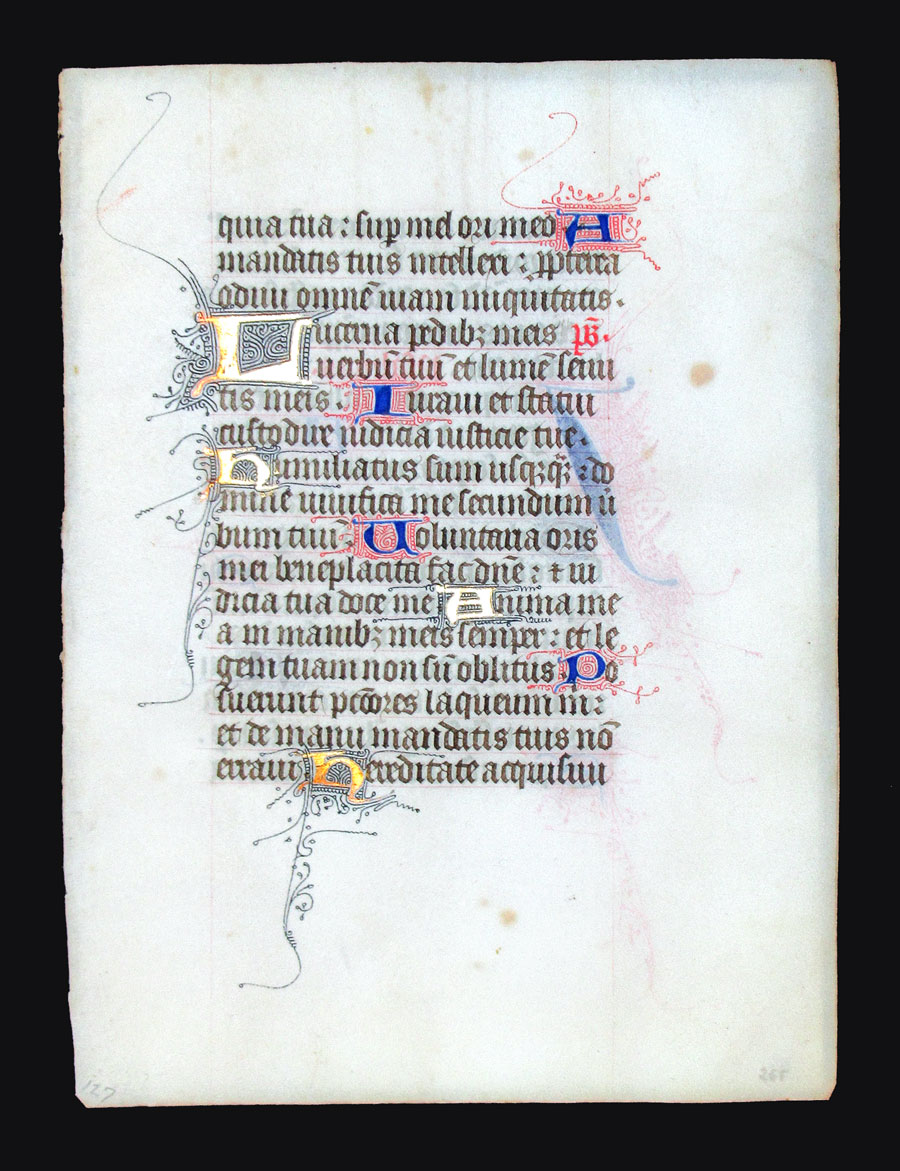 quia tua : sup mel ori meo A
mandatis tuis intellexi : ppterea
odiui omnē uiam iniquitatis .
Lucerna pedibꝫ meis ps̄ .
uerbū tuū et lumē semi
tis meis . Iuraui et statui
custodire iudicia iusticie tue .
Humiliatus sum usqꝫqꝫ : do
mine uiuifica me secundum ū
bum tuū . Uoluntaria oris
mei beneplacita fac dn̄e : ⁊ iu
dicia tua doce me Anima me
a in manibꝫ meis semper : et le
gem tuam non sū oblitus Po
suerunt pc̄cores laqueum m̄ :
et de manu mandatis tuis nō
erraui Hereditate acquisiui
127